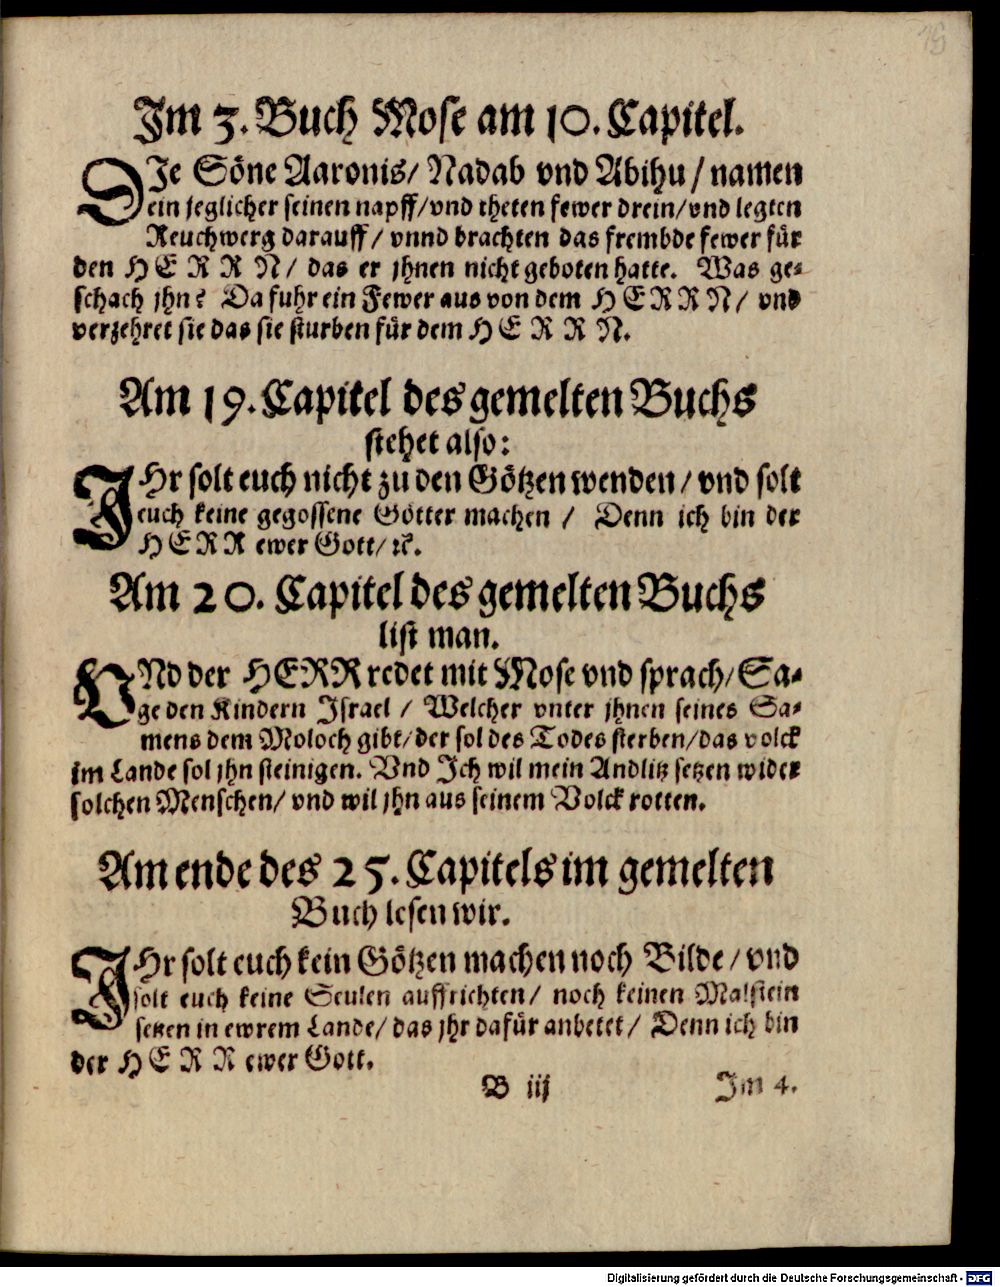 Im 3. Buch Mose am 10. Capitel.
DIe Söne Aaronis/ Nadab vnd Abihu/ namen
ein jeglicher seinen napff/ vnd theten fewer drein/ vnd legten
Reuchwerg darauff/ vnnd brachten das frembde fewer für
den HERRN/ das er jhnen nicht geboten hatte. Was ge-
schach jhn? Da fuhr ein Fewer aus von dem HERRN/ vnd
verzehret sie das sie sturben für dem HERRN.
Am 19. Capitel des gemelten Buchs
stehet also:
IHr solt euch nicht zu den Götzen wenden/ vnd solt
euch keine gegossene Götter machen / Denn ich bin der
HERR ewer Gott/ ꝛc.
Am 20. Capitel des gemelten Buchs
list man.
VNd der HERR redet mit Mose vnd sprach/ Sa-
ge den Kindern Israel / Welcher vnter jhnen seines Sa-
mens dem Moloch gibt/ der sol des Todes sterben/ das volck
im Lande sol jhn steinigen. Vnd Ich wil mein Andlitz setzen wider
solchen Menschen/ vnd wil jhn aus seinem Volck rotten.
Am ende des 25. Capitels im gemelten
Buch lesen wir.
IHr solt euch kein Götzen machen noch Bilde/ vnd
solt euch keine Seulen auffrichten/ noch keinen Malstein
setzen in ewrem Lande/ das jhr dafür anbetet/ Denn ich bin
der HERR ewer Gott.
B iij Im 4.
Digitalisierung gefördert durch die Deutsche Forschungsgemeinschaft - DFG